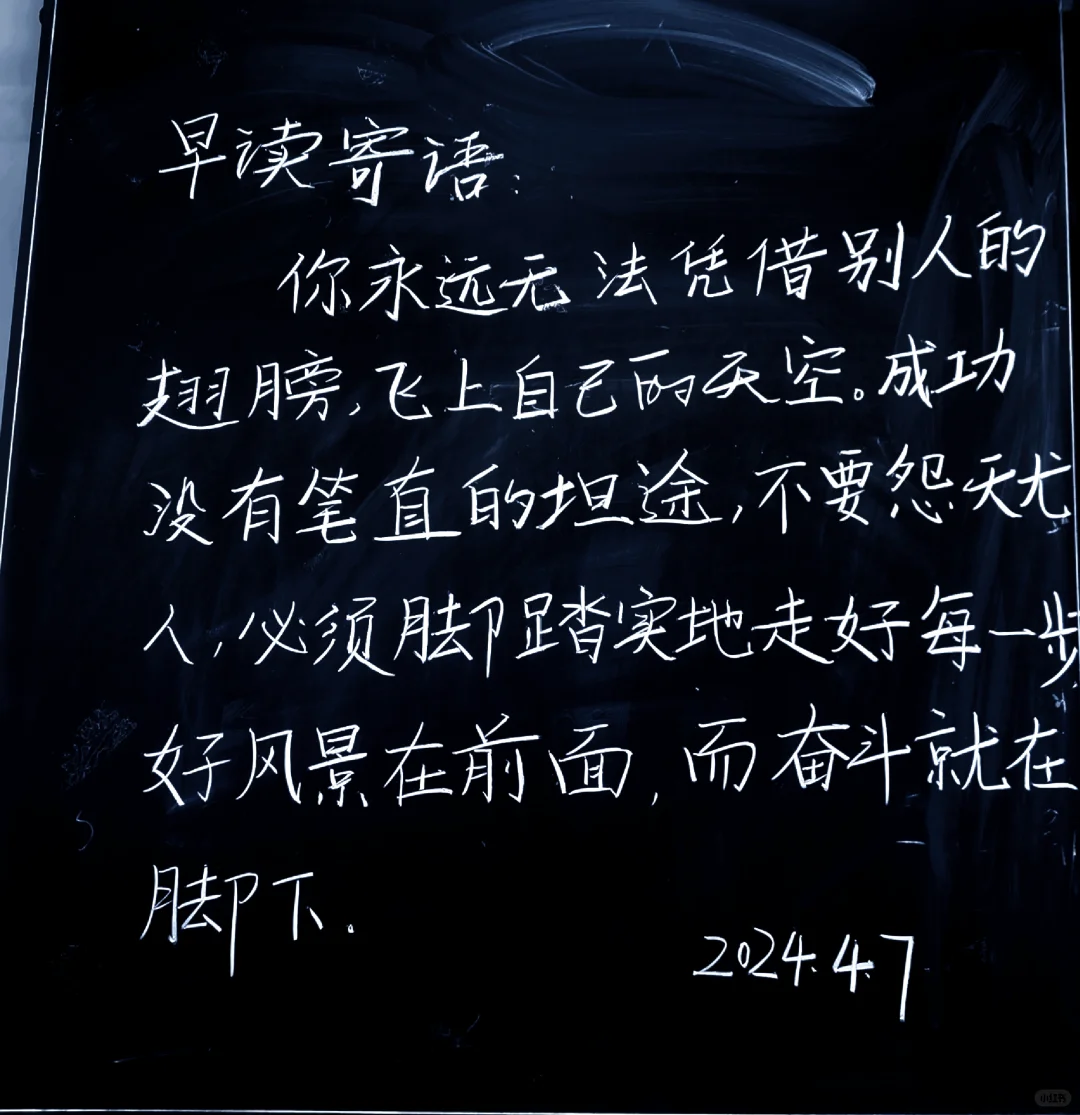 早读寄语:
你永远无法凭借别人的
翅膀,飞上自己的天空。成功
没有笔直的坦途,不要怨天尤
人,必须脚踏实地走好每一步,
好风景在前面,而奋斗就在
脚下.
2024.4.7
小红书